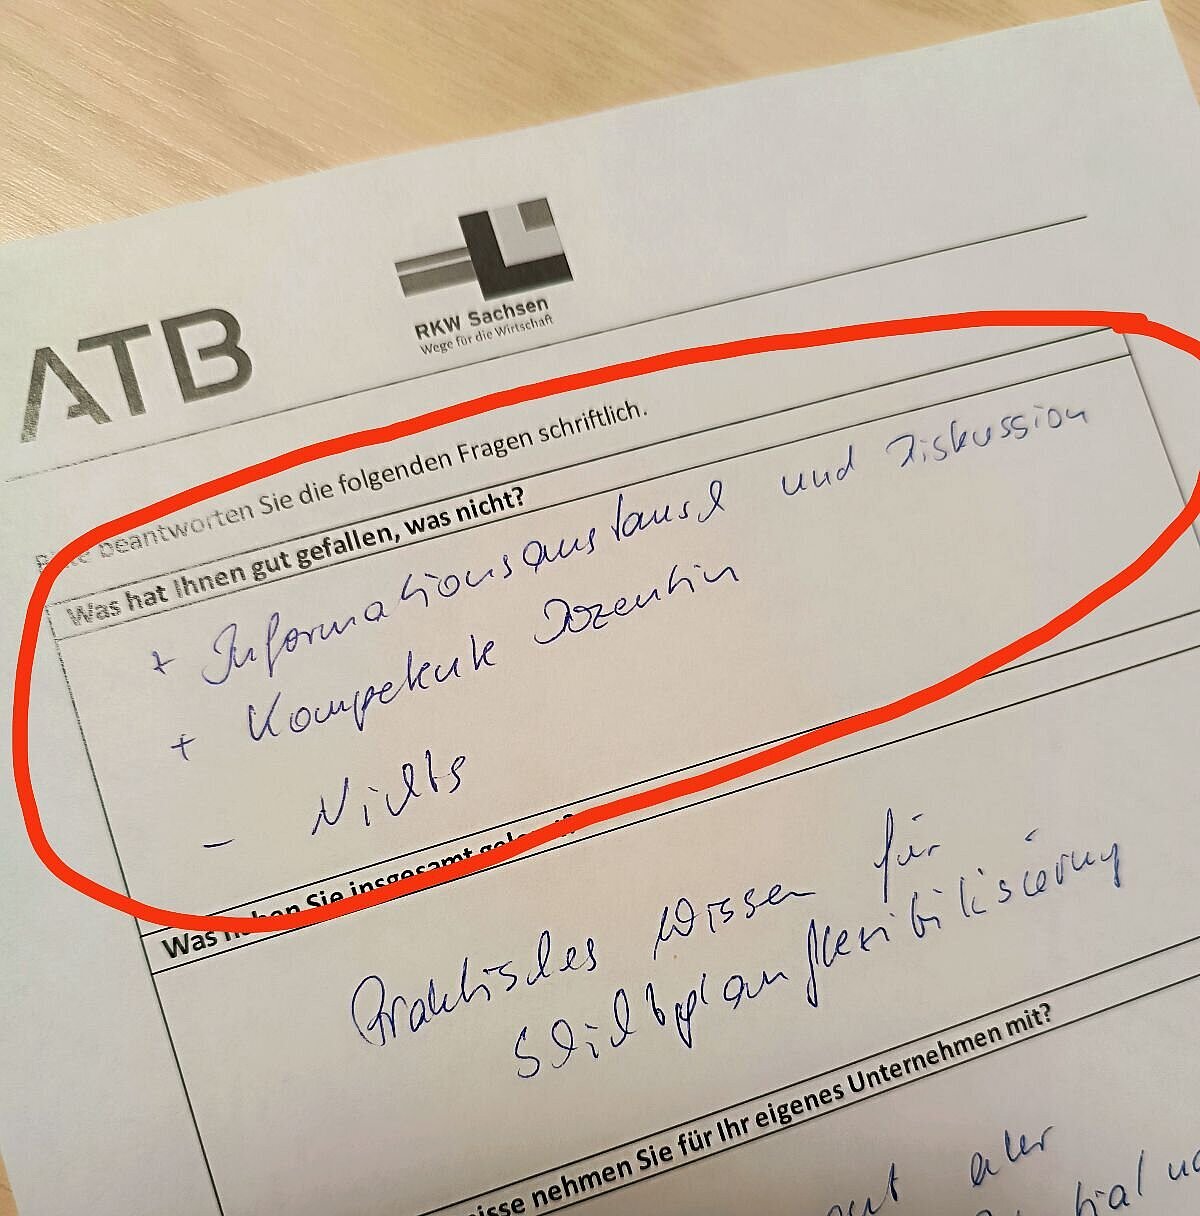 ATB
RKW Sachsen
Wege für die Wirtschaft
Bitte beantworten Sie die folgenden Fragen schriftlich.
Was hat Ihnen gut gefallen, was nicht?
+ Informationsaustausch und Diskussion
+ Kompetente Dozentin
- Nichts
Was haben Sie insgesamt gelernt?
Praktisches Wissen für
Schichtplanflexibilisierung
nehmen Sie für Ihr eigenes Unternehmen mit?
aller